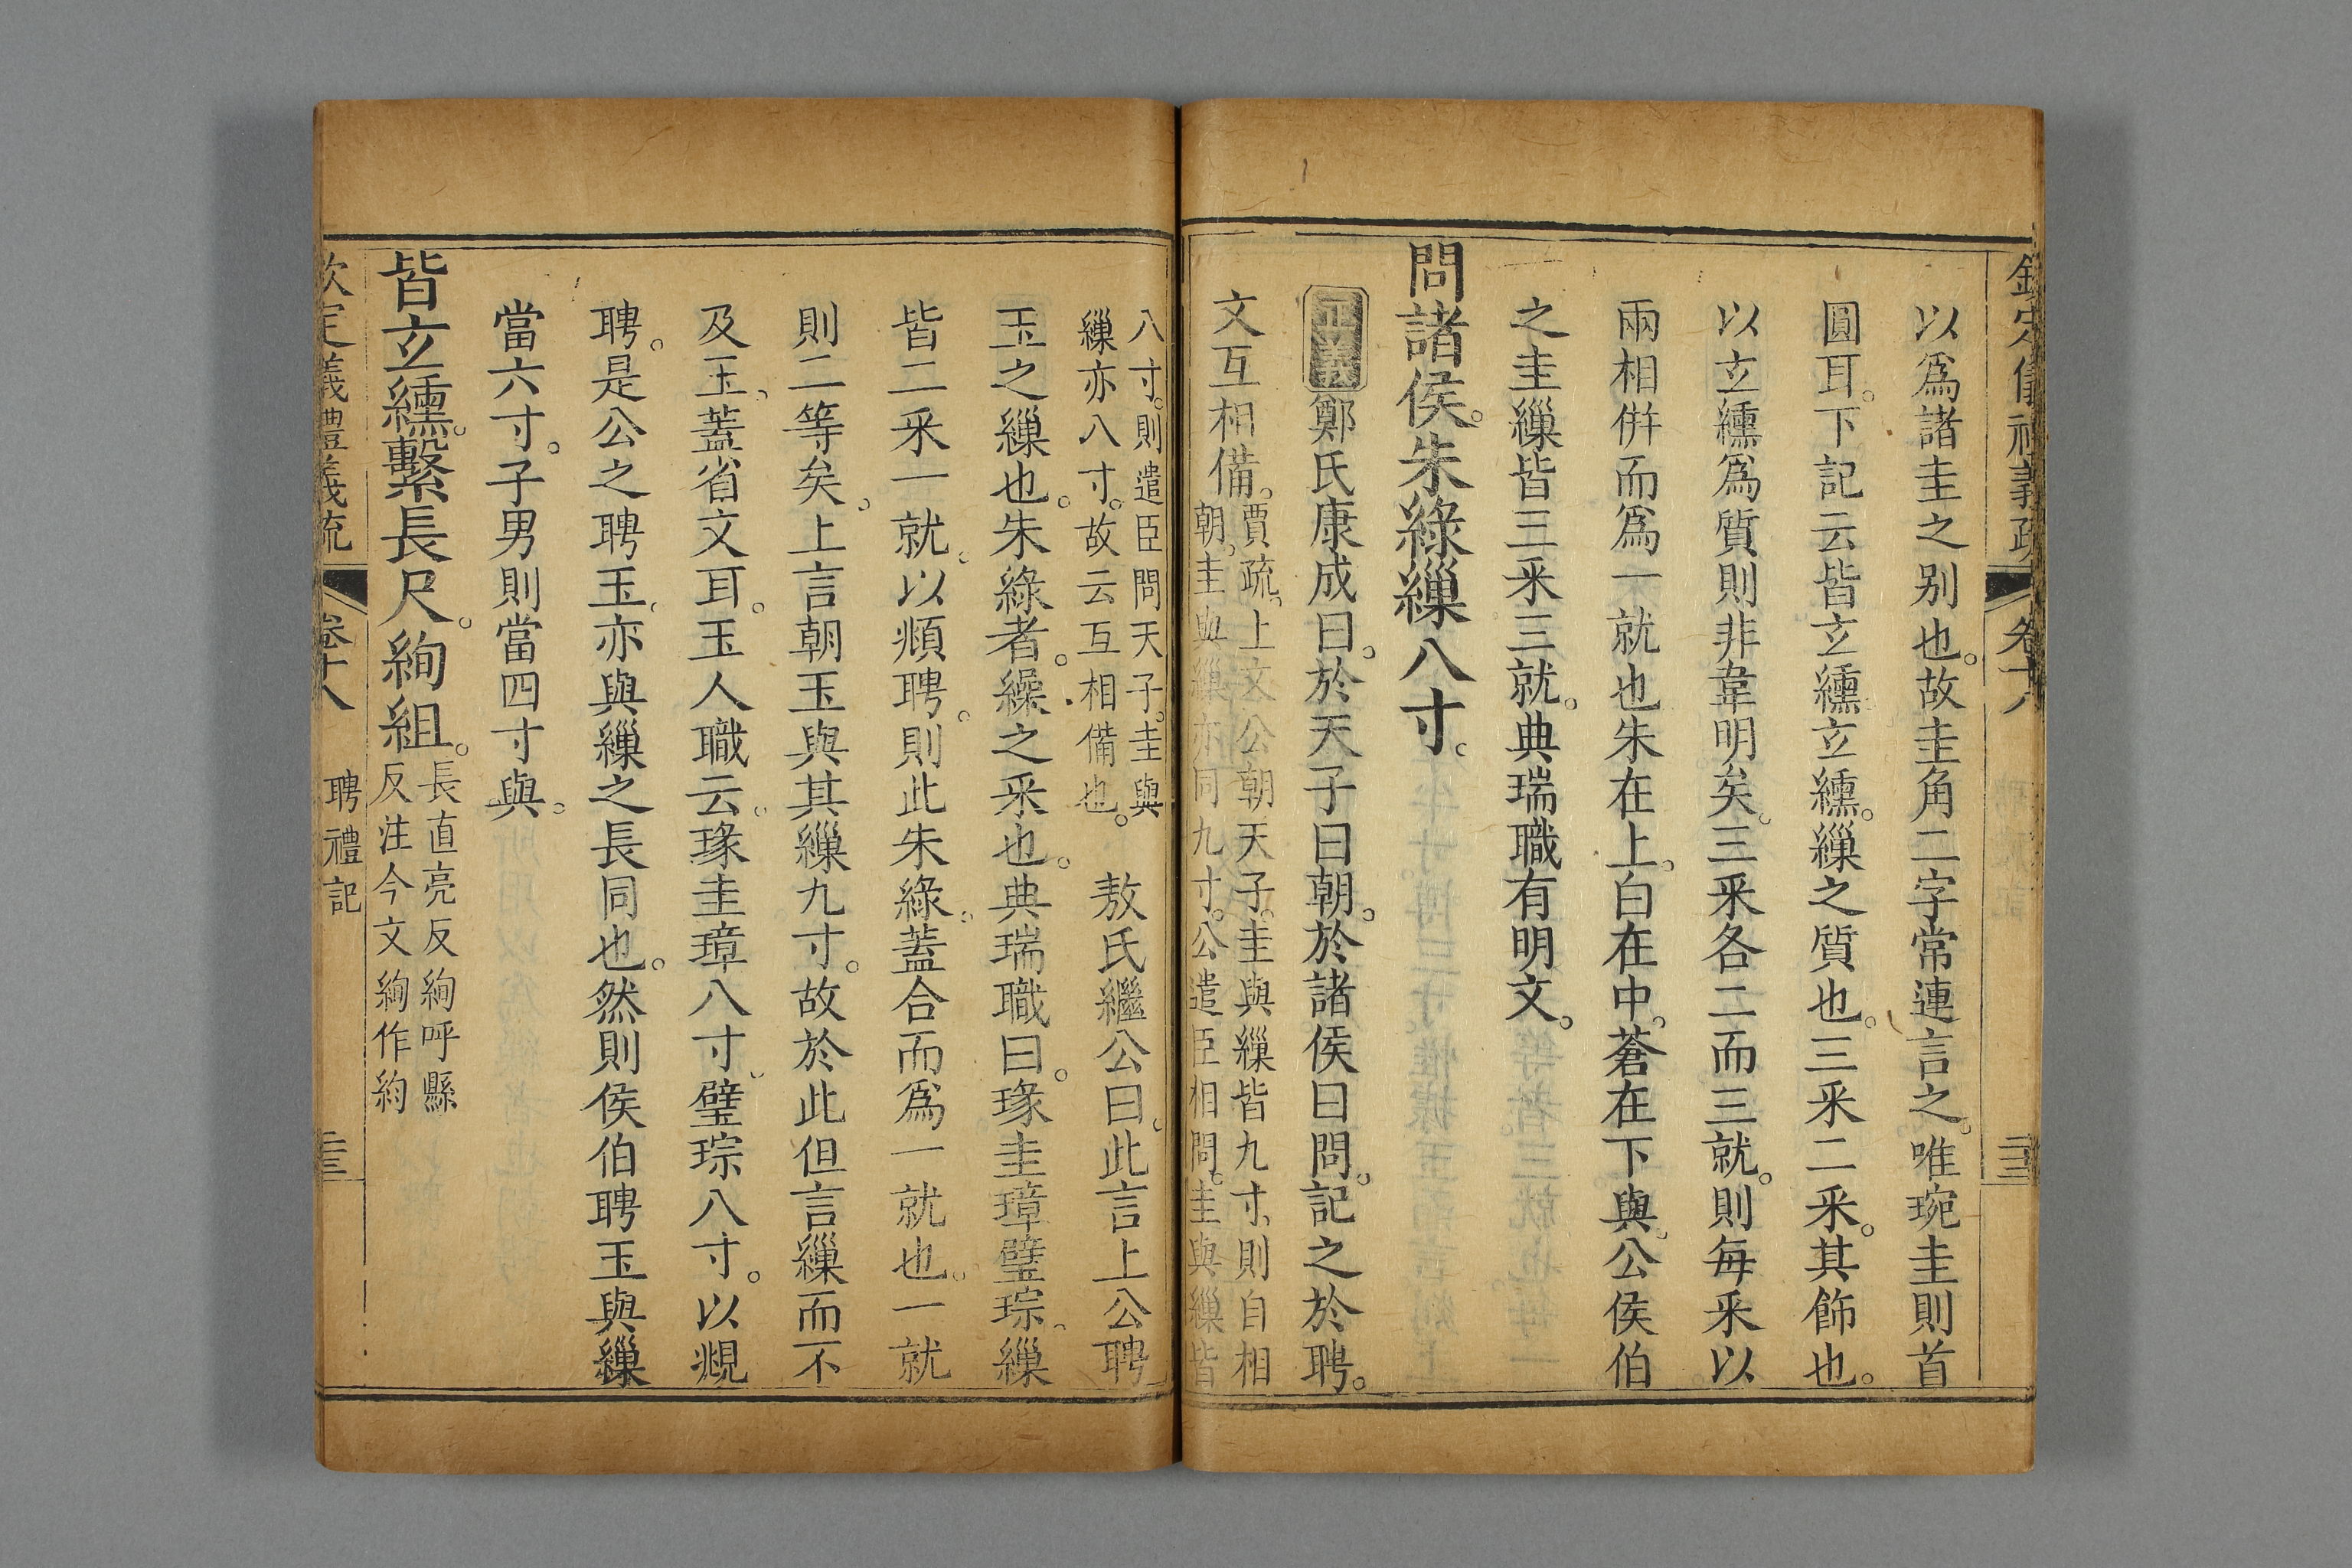 欽定儀禮義疏 卷十八 三三
以爲諸圭之别也。故圭角二字常連言之。唯琬圭則首
圓耳。下記云皆玄纁立纁。繅之質也。三采二采。其飾也。
以玄纁爲質則非韋明矣。三采各二而三就。則每采以
兩相併而爲一就也朱在上。白在中。蒼在下與。公侯伯
之圭繅皆三采三就。典瑞職有明文。
問諸侯。朱綠繅八寸。
正義鄭氏康成曰。於天子曰朝。於諸侯曰問。記之於聘。
文互相備。
賈疏。上文公朝天子。圭與繅皆九寸、則自相
朝。圭與繅亦同九寸。公遣臣相問。圭與繅皆
八寸。則遣臣問天子。圭與
繅亦八寸。故云互相備也。
敖氏繼公曰。此言上公聘
玉之繅也。朱綠者。繅之采也。典瑞職曰。瑑圭璋璧琮、繅
皆二采一就。以頫聘。則此朱綠。蓋合而爲一就也。一就
則二等矣。上言朝玉與其繅九寸。故於此但言繅而不
及玉、蓋省文耳。玉人職云。瑑圭璋八寸、璧琮八寸。以覜
聘。是公之聘玉。亦與繅之長同也。然則侯伯聘玉與繅
當六寸。子男則當四寸與。
皆玄纁。繫長尺。絢組。
長直亮反絢呼縣
反注今文絢作約
欽定儀禮義疏 卷十八 聘禮記 三三